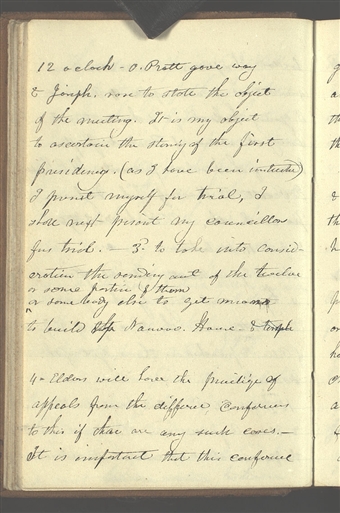 12 oclock - O. Pratt gave way
& Joseph. rose to state the object
of the meeting. It is my object
to ascertain the standing of the first
presidency. (as I have been instructed)
I present myself for trial, I
shall next present my councillors
for trial. — 3d. to take into consid-
eration the sending out of the twelve
or some portion of them
or some body else to get means
to build Nauvoo. House & temple
4 - Elders will have the privilege of
appeals from the different Conferences
to this if there are any such cases. —
It is important that this conference